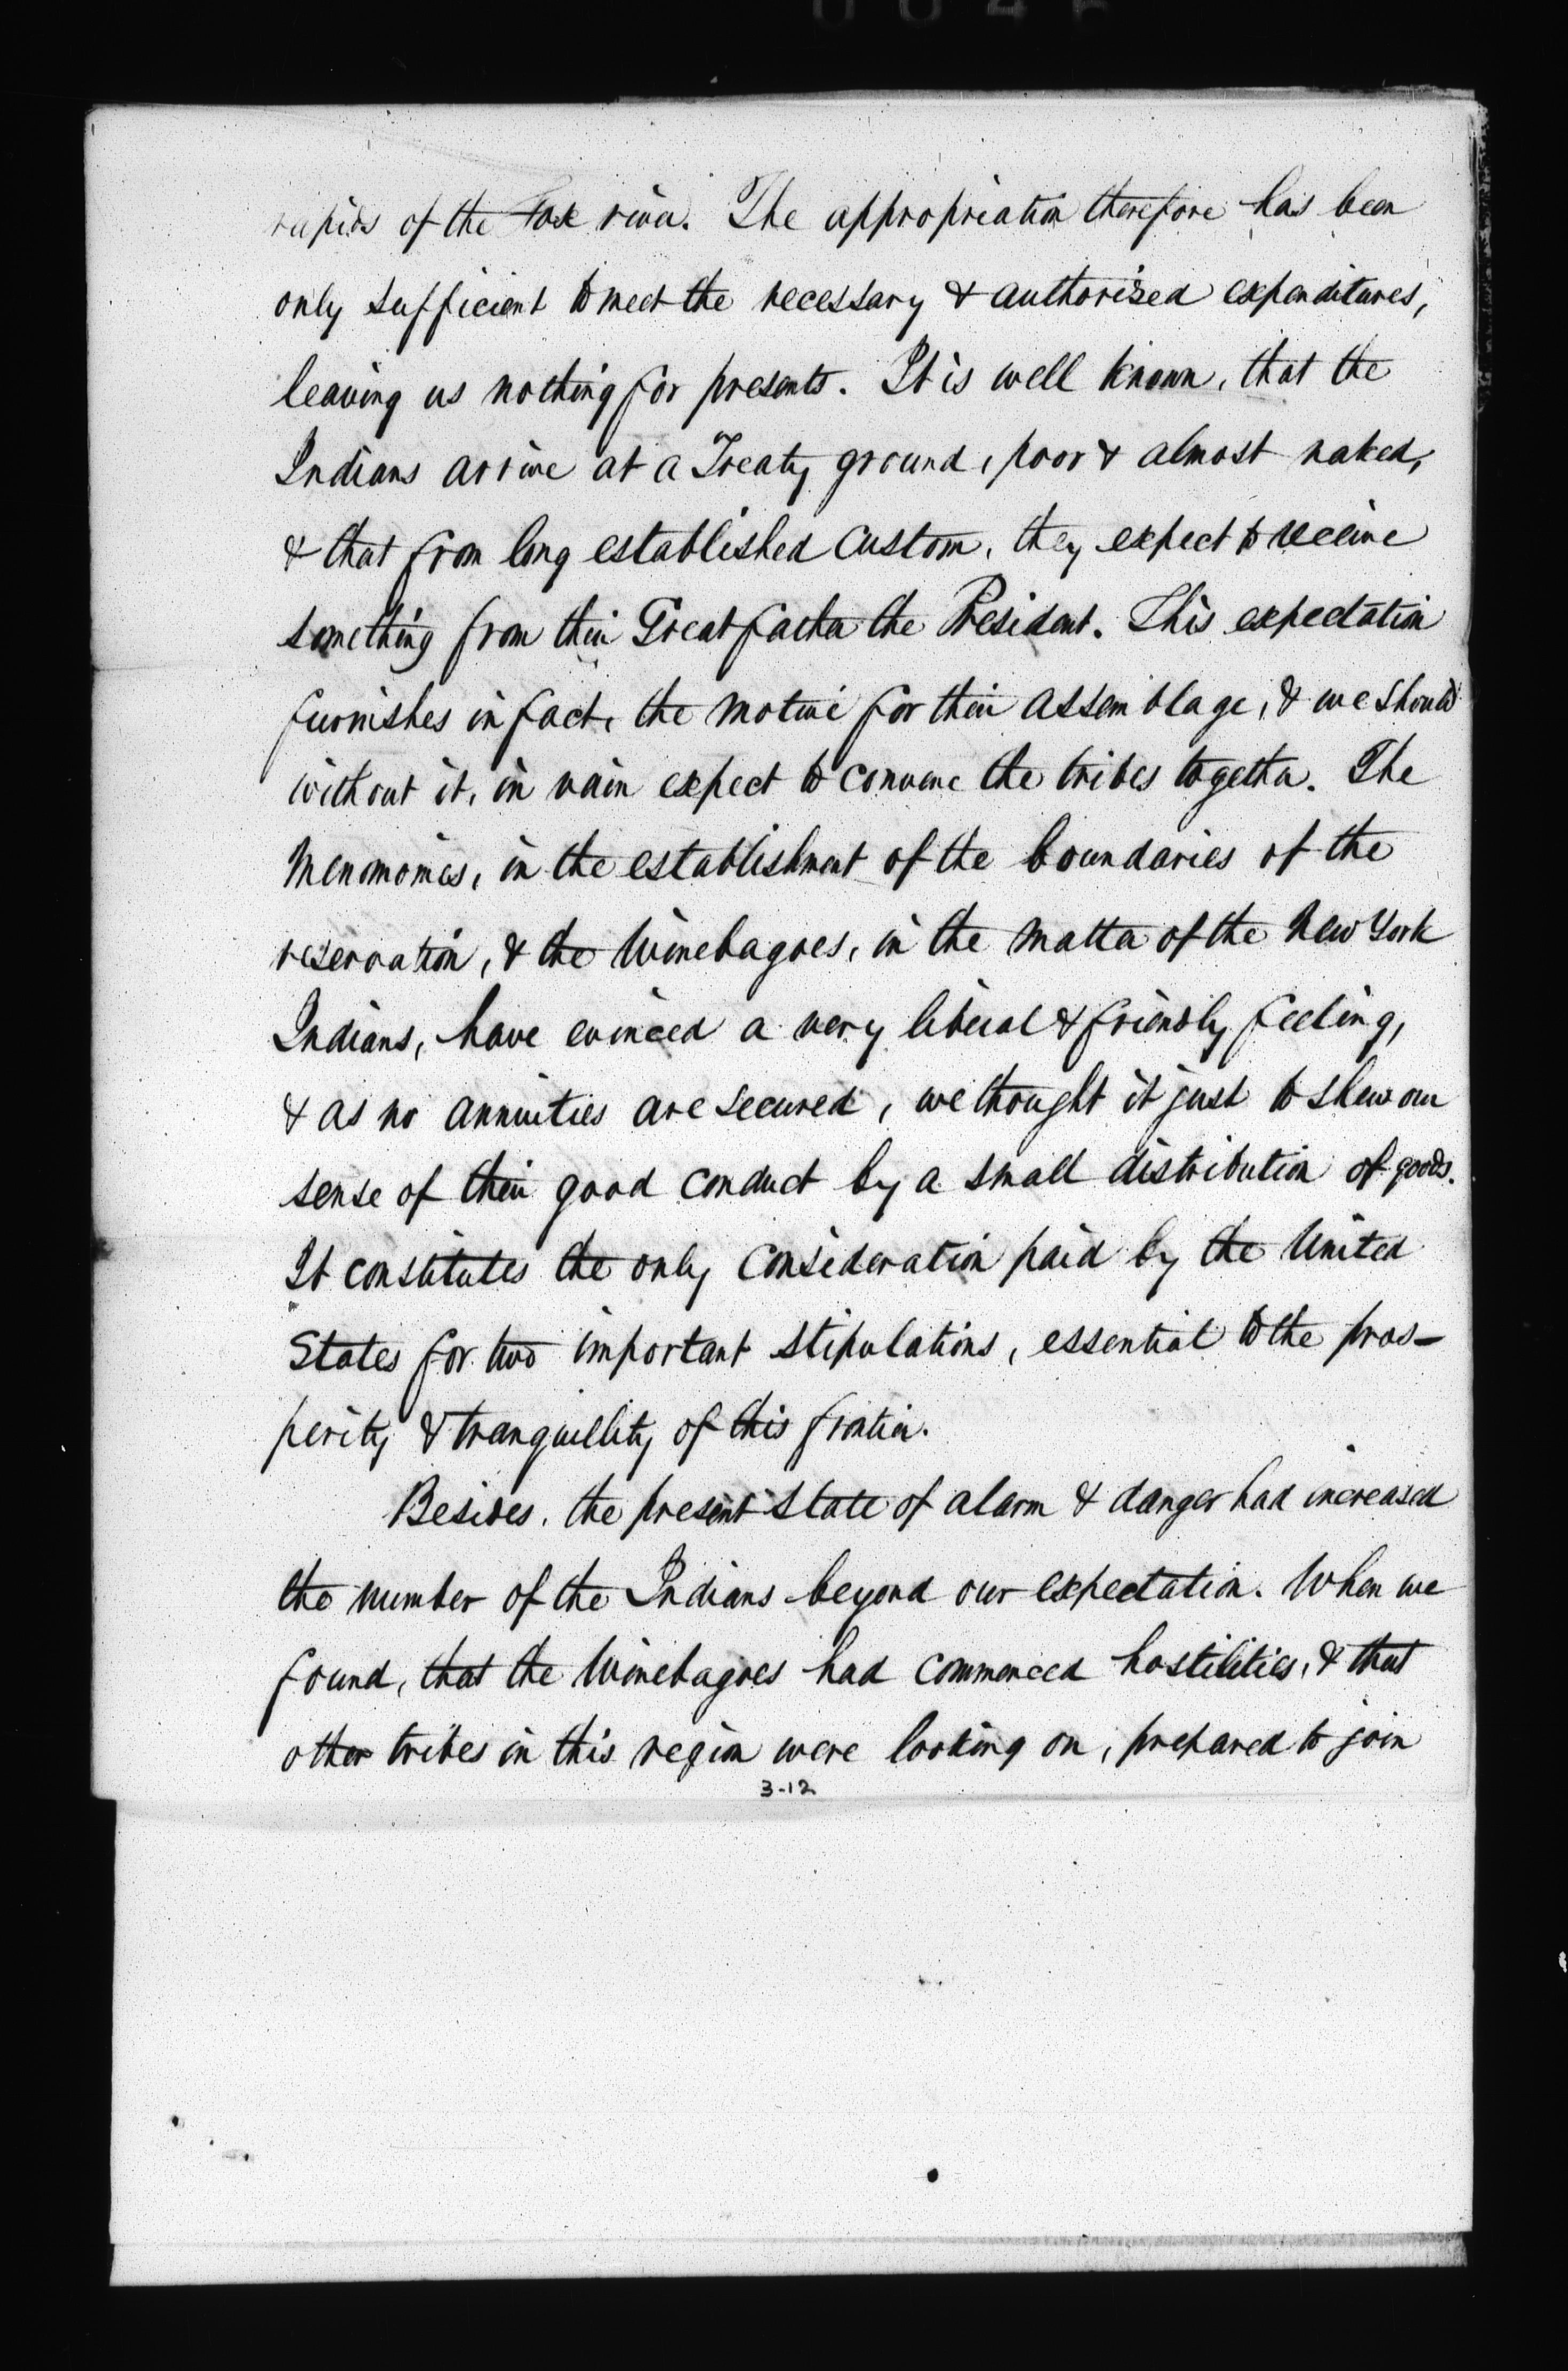 rapids of the Fox river. The appropriation therefore has been
only sufficient to meet the necessary & authorized expenditures,
leaving us nothing for presents. It is well known, that the
Indians arrive at a Treaty ground, poor & almost naked,
& that from long established custom, they expect to receive
something from their Great father the President. This expectation
furnishes in fact, the motive for their assemblage, & we should
without it, in vain expect to convene the tribes together. The
Menomonies, in the establishment of the boundaries of the
reservation, & the Winebagoes, in the matter of the New York
Indians, have evinced a very liberal & friendly feeling,
& as no annuities are secured, we thought it just to shew our
sense of their good conduct by a small distribution of goods.
It constitutes the only consideration paid by the United
States for two important stipulations, essential to the pros-
perity & tranquillity of this frontier.
Besides, the present state of alarm & danger had increased
the number of the Indians beyond our expectation. When we
found, that the Winebagoes had commenced hostilities, & that
other tribes in this region were looking on, prepared to join
3-12